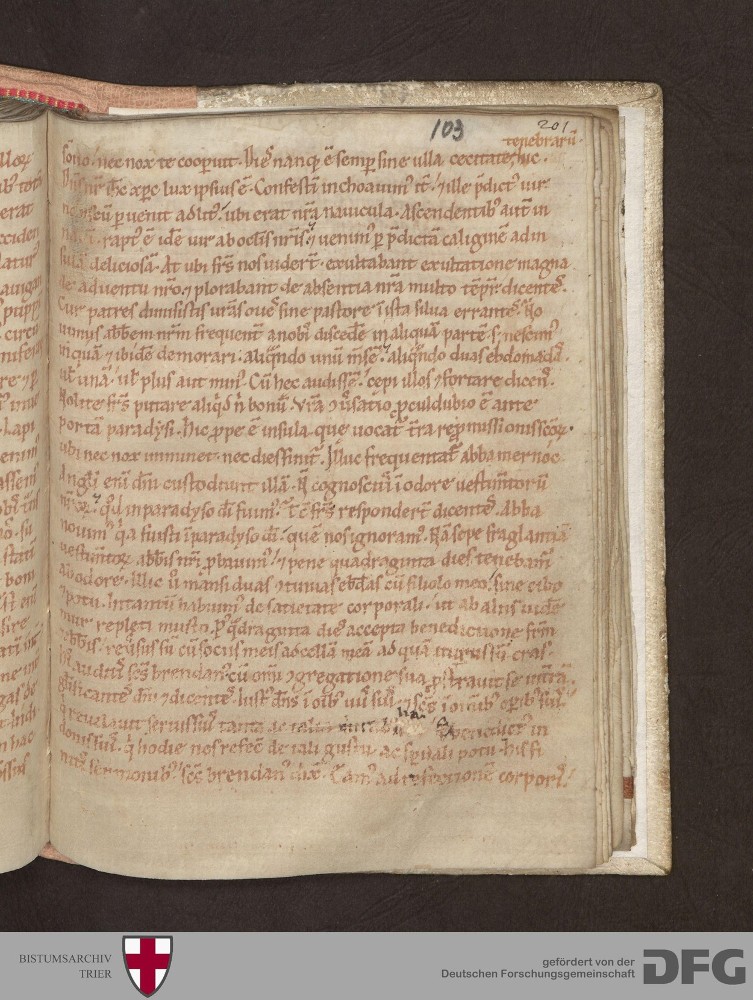 103
201
tenebrarū
sōno. nec nox te cooperuit. Dieſ nanq; ē semp sine ulla cecitate huc.
Dn̄s nr̄ ihc xp̄c lux ipsius ē. Confestī inchoauim' it̄. ⁊ ille p̄dict' uir
nobiscū puenit ad lit'. ubi erat nr̄a nauicula. Ascendentib' aut̄ in
nauī. rapt' ē idē uir ab oclis nr̄is. ⁊ uenim' p p̄dictā caliginē ad in
sulā deliciosā. At ubi fr̄s nos uidert̄. exultabant exultatione magna
de aduentu nr̄o. ⁊ plorabant de absentia nr̄a multo tēpr̄. dicenteſ.
Cur patres dimisistis ur̄as oueſ sine pastore ī ista silua erranteſ. No
uimus abb̄em nr̄m frequent̄ a nobiſ discedē in aliquā partē. s; nescim'
in quā. ⁊ ibidē demorari. aliqn̄do unū m̄sē. aliqn̄do duas ebdomadaſ.
ul' unā. ul' plus aut min'. Cū hec audissē. cepi illos ⁊fortare dicenſ.
Nolite fr̄s putare aliqd n̄ bonū. Vr̄a ⁊uersatio pculdubio ē ante
portā paradysi. Hic ppe ē insula que uocat' t̄ra repmissionis sc̄oꝝ.
ubi nec nox imminet. nec dies finit'. Illuc frequentat abba mernoc.
Angl̄i eni dn̄i custodiunt illā. N̄ cognoscitis ī odore uestim̄torū
nr̄oꝝ. qd in paradyso dī fuim'. Tc̄ fr̄s respondert̄ dicenteſ. Abba
nouim' qa fuisti ī paradyso dī. quē nos ignoram'. Nā sepe fraglantiā
uestim̄toꝝ abb̄is nr̄i pbauim'. ⁊ pene quadraginta dies tenebam'
ab odore. Illic u° mansi duas ⁊tinuas ebd̄as cū filiolo meo. sine cibo
⁊ potu. Intantū habuim' de satietate corporali. ut ab aliis uidē
mur repleti musto. P' q̄draginta dieſ accepta benedictione fr̄m
⁊ abb̄is. reuersus sū cū sociis meis ad cellā meā ad quā iturus sū cras.
His auditiſ sc̄s brendan' cū omī ⁊gregatione sua pstrauit se in t̄rā.
gl̄ificanteſ dn̄m ⁊ dicenteſ. Iust' dn̄s ī oīb' uiis suis. ⁊ sc̄s ī omīb' opib' suiſ.
q̄ reuelauit seruis suiſ tanta ac talia mirabilia. Et benedict' in
donis suiſ. q̄ hodie nos refec̄ de tali gustu ac sp̄uali potu. His fi
nitiſ sermonib'. sc̄s brendan' dix̄. Eam' ad refectionē corporiſ.
BISTUMSARCHIV
TRIER
gefördert von der
Deutschen Forschungsgemeinschaft
DFG